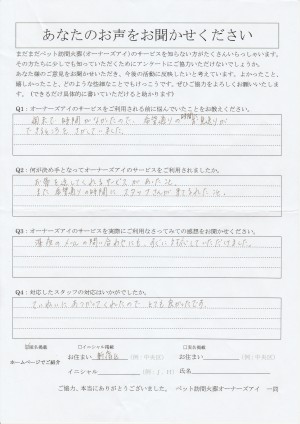 あなたのお声をお聞かせください
まだまだペット訪問火葬(オーナーズアイ)のサービスを知らない方がたくさんいらっしゃいます。
その方たちに少しでも知っていただくためにアンケートにご協力いただけないでしょうか。
あなた様のご意見をお聞かせいただき、今後の活動に反映したいと考えています。よかったこと、
嬉しかったこと、どのような些細なことでもけっこうです。ぜひご協力をよろしくお願いいたします。
(できるだけ具体的に書いていただけると助かります)
Q1:オーナーズアイのサービスをご利用される前に悩んでいたことをお教えください。
時間がなかったので、希望通りの時間に
できるところをさがしていました。
Q2:何が決め手となってオーナーズアイのサービスをご利用されましたか。
お骨を返してくれるサービスがあったこと。
また希望の時間にスタッフさんが来てくれたこと。
Q3:オーナーズアイのサービスを実際にご利用なさってみての感想をお聞かせください。
深夜のメールの問い合わせにも、すぐに対応していただけました。
Q4:対応したスタッフの対応はいかがでしたか。
ていねいにあつかってくれたのでとても良かったです。
☑匿名掲載 □イニシャル掲載 □実名掲載
ホームページでご紹介 お住まい 新宿区 (例:中央区) お住まい (例:中央区)
イニシャル (例:I.H) 氏名
ご協力、本当にありがとうございました。 ペット訪問火葬オーナーズアイ 一同